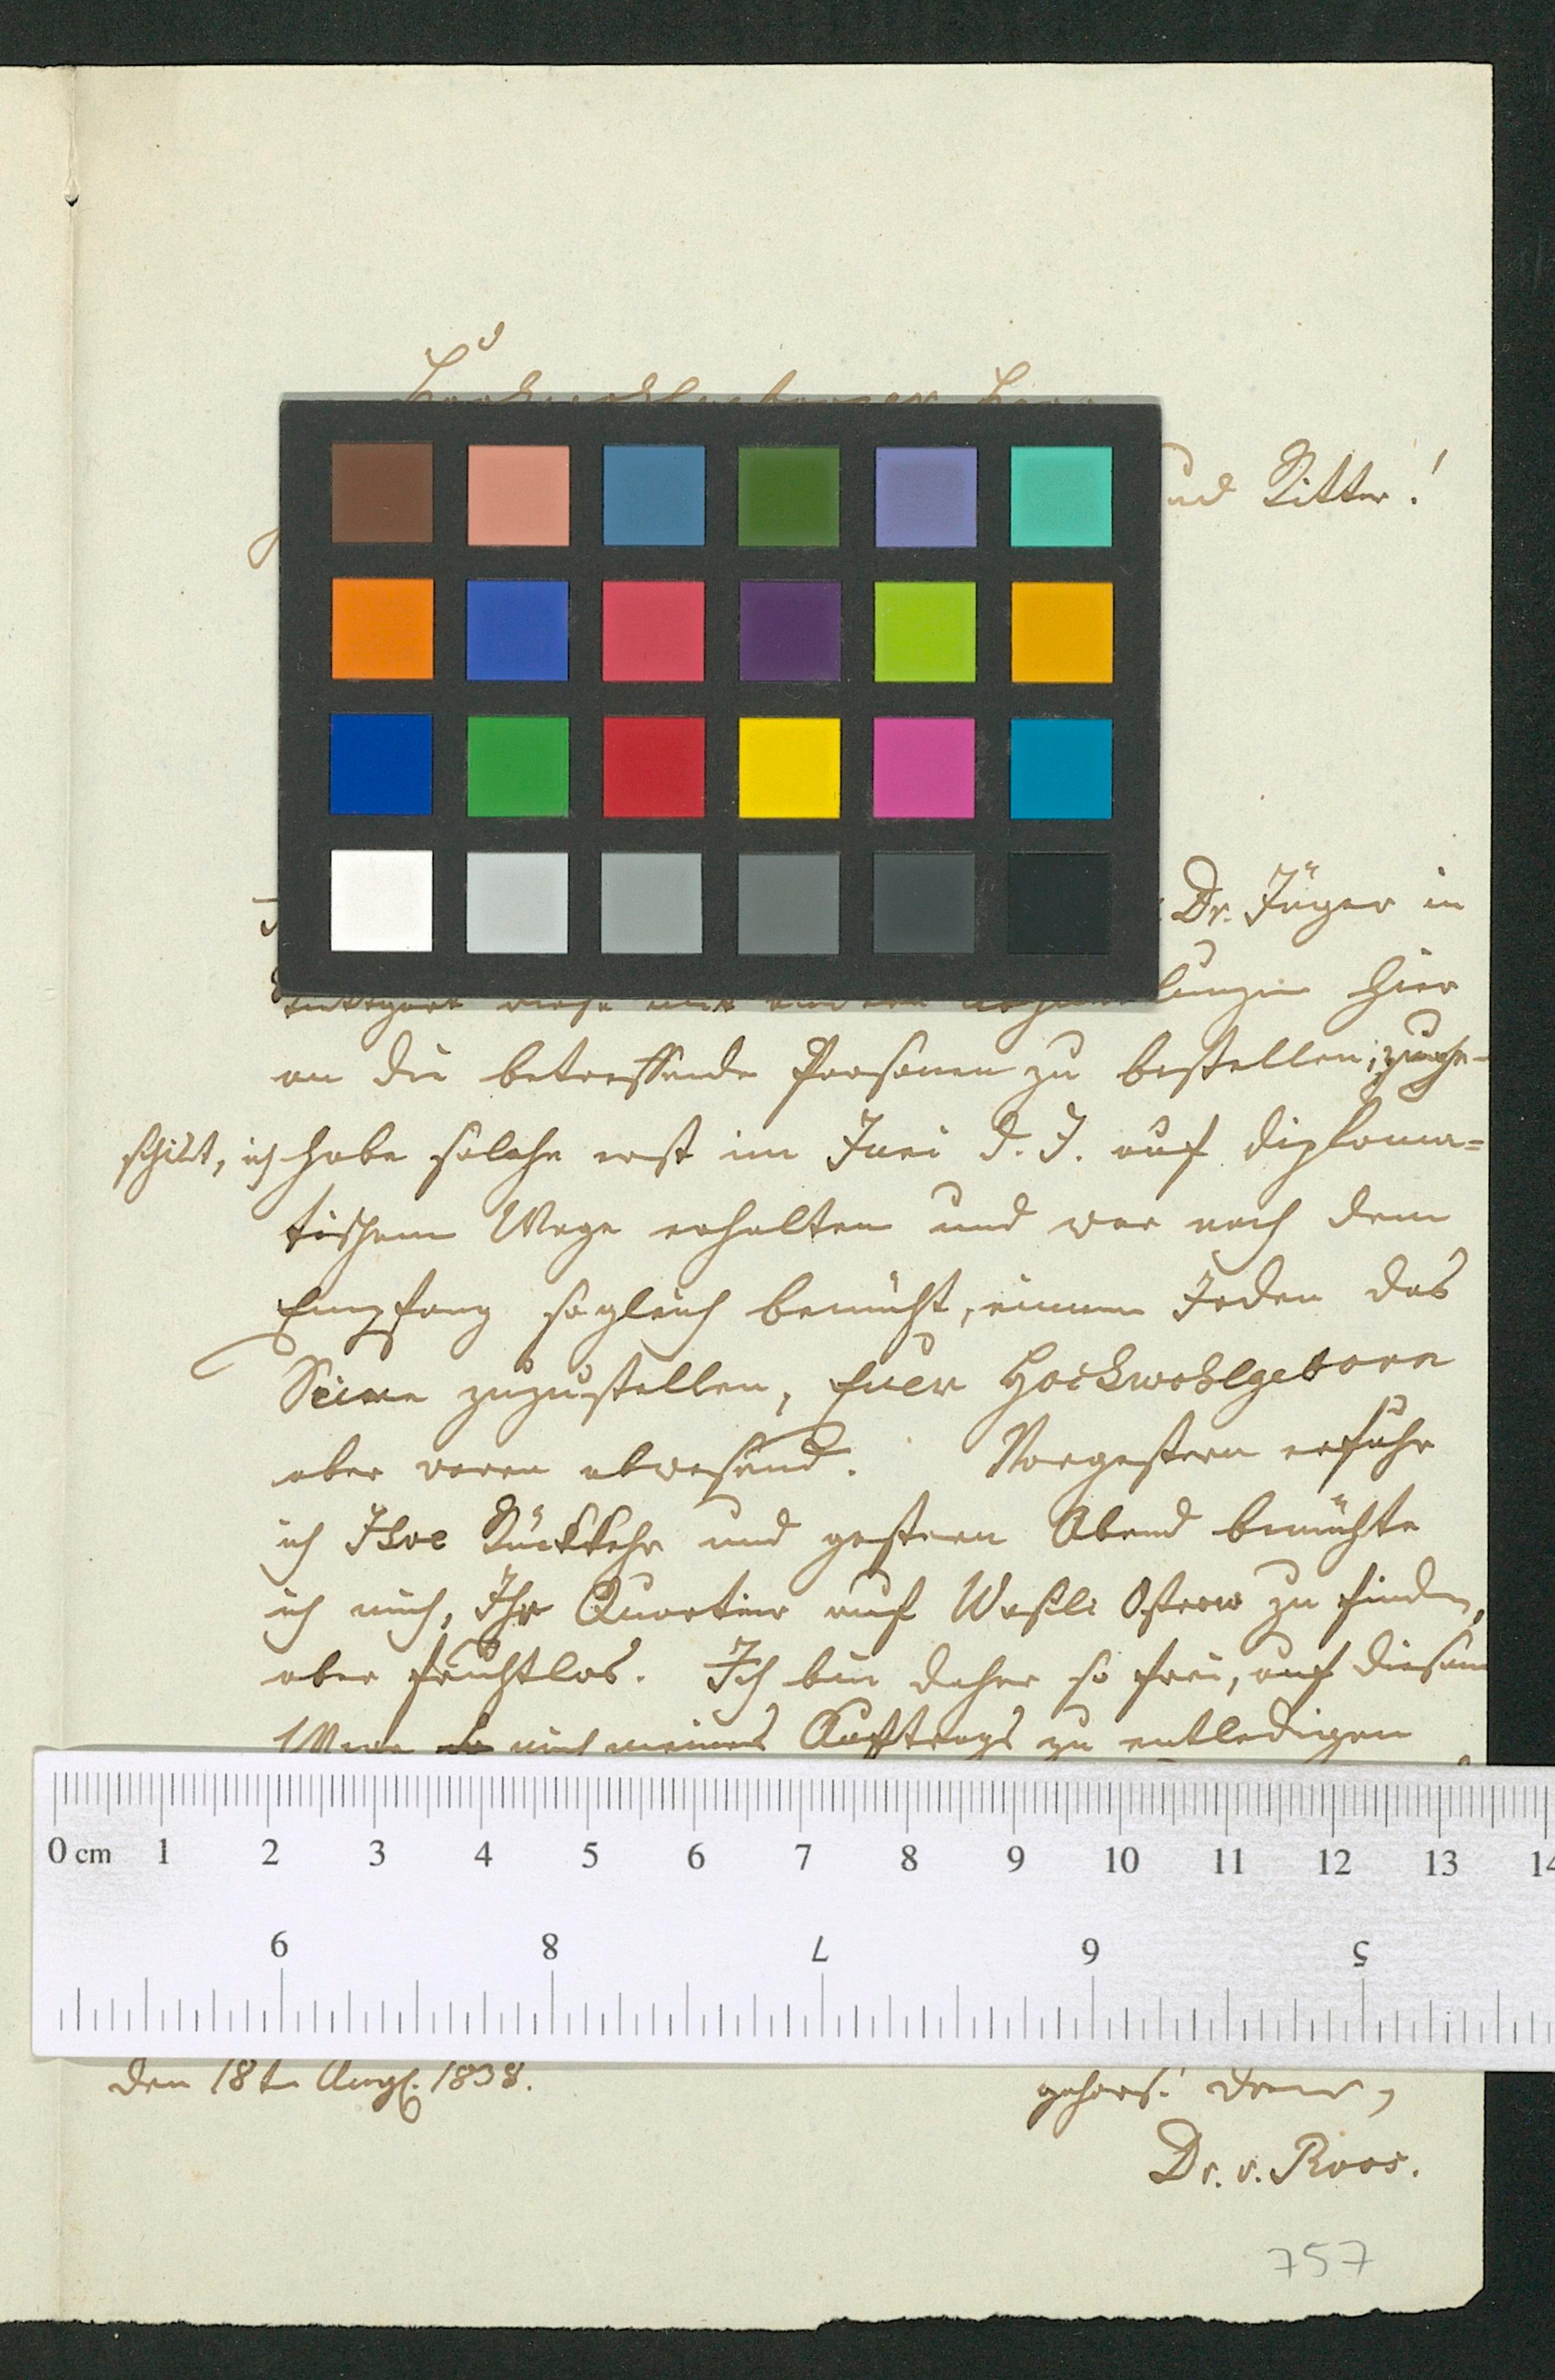 Hochwohlgeborner Herr
und Ritter!
Dr. Jäger in
Stuttgart diese mit andern hier
an die betreffende Personen zu bestellen, zuge-
schikt, ich habe solche erst im Juni d. J. auf diploma-
tischem Wege erhalten und war nach dem
Empfang sogleich bemüht, einem Jeden das
Seine zuzustellen, Euer Hochwohlgeborn
aber waren abwesend. Vorgestern erfuhr
ich Ihre Rückkehr und gestern Abend bemühte
ich mich, Ihr Quartier auf Wasili Ostrow zu finden,
aber fruchtlos. Ich bin daher so frei, auf diesem
Wege mich meines Auftrags zu entledigen
0 cm 1 2 3 4 5 6 7 8 9 10 11 12 13 14
9 8 7 6 5
den 18t Aug. 1838.
gehors.
Dr. v. Roos.
757